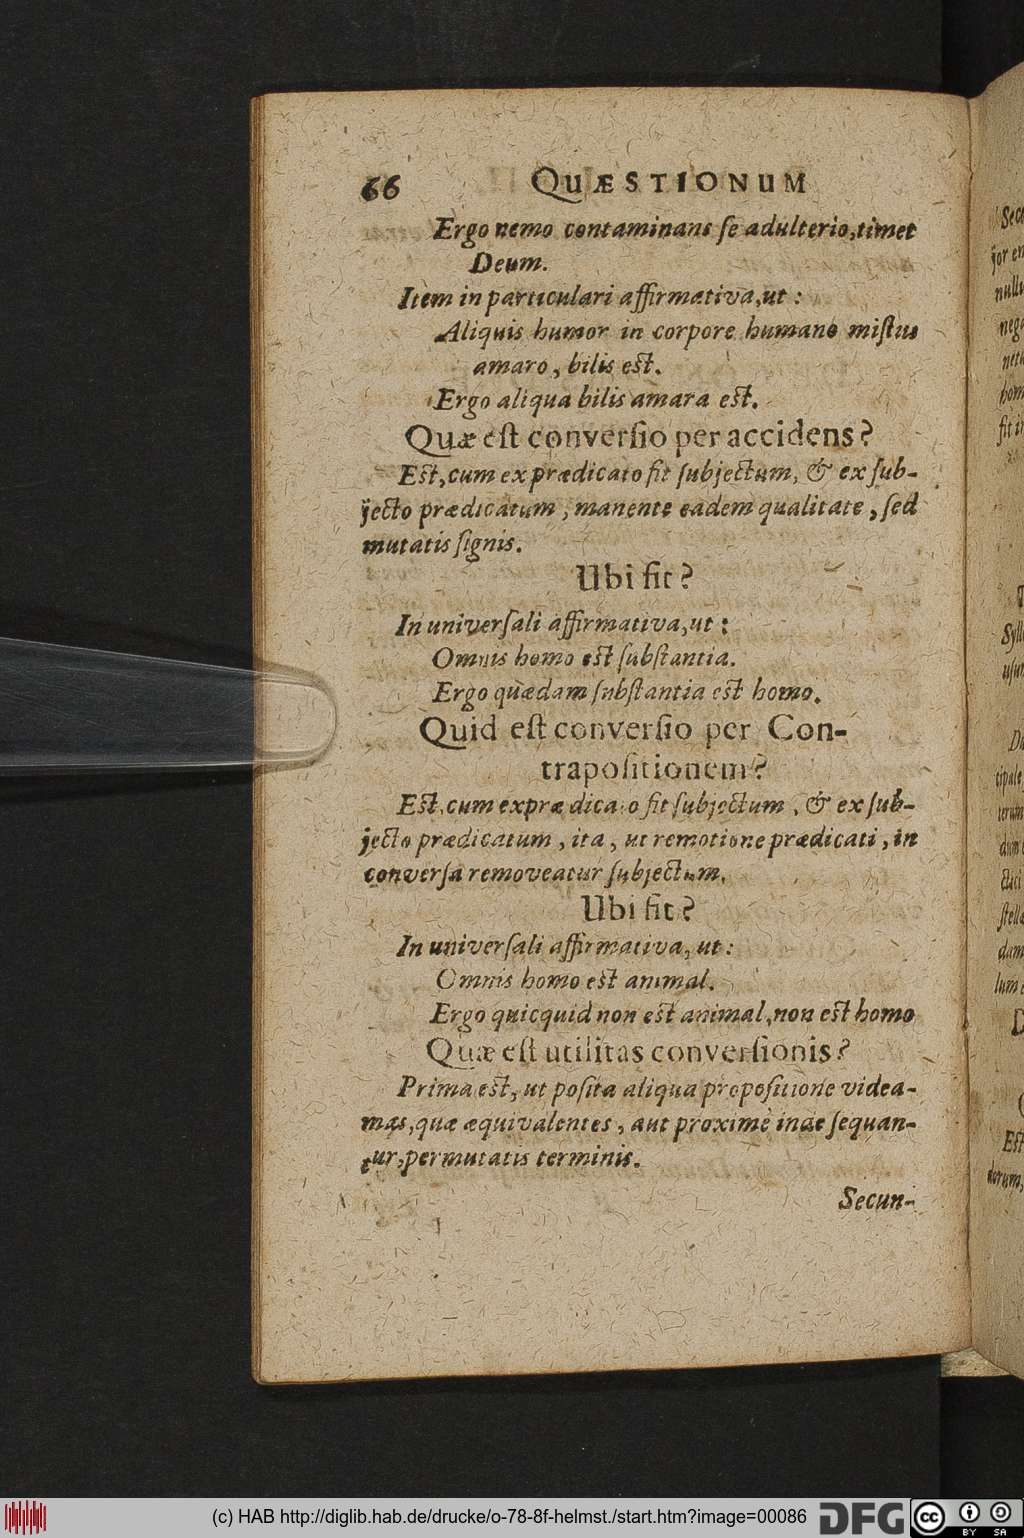 66 QUÆSTIONUM
Ergo nemo contaminans ſe adulterio, timet
Deum.
Item in particulari affirmativa, ut :
Aliquis humor in corpore humano miſtus
amaro, bilis est.
Ergo aliqua bilis amara est.
Quæ eſt converſio per accidens?
Est, cum ex prædicato fit ſubjectum, & ex ſub-
jecto prædicatum, manente eadem qualitate, ſed
mutatis ſignis.
Ubi fit?
In univerſali affirmativa, ut :
Omnis homo est ſubſtantia.
Ergo quædam ſubſtantia est homo.
Quid eſt converſio per Con-
trapoſitionem?
Est, cum ex prædicato fit ſubjectum, & ex ſub-
jecto prædicatum, ita, ut remotione prædicati, in
converſa removeatur ſubjectum.
Ubi fit?
In univerſali affirmativa, ut :
Omnis homo est animal.
Ergo quicquid non est animal, non est homo
Quæ eſt utilitas converſionis?
Prima est, ut poſita aliqua propoſitione videa-
mus, quæ æquivalentes, aut proximè inde ſequan-
tur, permutatis terminis.
Secun-
(c) HAB http://diglib.hab.de/drucke/o-78-8f-helmst./start.htm?image=00086
DFG
cc BY SA